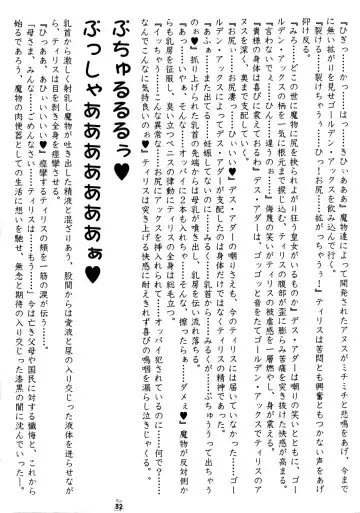 「ひぎっ……かっ……はっ……さひぃあああ」魔物達によって開発されたアヌスがミチミチと悲鳴をあげ、今まで
に無い拡がりを見せゴールデン・アックスを飲み込んで行く。
「裂けるっ……裂けちゃうぅ……ひっ……お尻っ……拡がっちゃうぅ……！」ティリスは苦悶とも興奮ともつかない声をあげ
仰け反る。
「一体この世のどこに魔物に尻を抉られよがり狂う皇女がいるものか」デス・アダーは嘲りの笑いとともに、ゴー
ルデン・アックスの柄を一気に根元まで捩じ込む。ティリスの腹部が歪に膨らみ苦痛を突き抜けた快感が高まる。
「言わないでぇ……ひんっ……違うのぉ……」侮蔑の笑いがティリスの被虐感を一層燃やし、身が震える。
「貴様の身体が喜びに震えておるわ」デス・アダーは、ゴツゴツと骨をたてゴールデン・アックスでティリスのア
ヌスを深く、奥まで支配していく。
「お尻ぃ……お尻凄っ……ひぃぃ♥」デス・アダーの嘲りさえも、今のティリスには届いていなかった……ゴー
ルデン・アックスによってデス・アダーが支配したのは身体だけではなくティリスの精神であった。
「あふぁ……また出てる……妊娠してないのに……みるく……乳首から……みるくが……ぶちゅううって出ちゃう
のぉ♥」抉りぬかれ、ティリスの乳首の先端からは母乳が噴き出し、乳房を伝い流れ落ちる。
「あーっ……いいっ……そんなぁ……オッパイに2本も入れちゃ……そんな……擦ったらぁ……ダメぇ♥」魔物が反対側か
らも乳房を征服し、臭い立つペニスの律動にティリスの全身は総毛立つ。
「イッちゃ……こんな異常な……お尻にアックスを挿入れられて……オッパイ犯されているのに……何で？……
何でこんなに気持良いのぉ♥」ティリスは突き上げる快感に耐えきれず喜びの嗚咽を漏らし泣きじゃくる。
ぶちゅるるるぅ♥
ぶっしゃああああああぁ♥
乳首から激しく射乳し魔物が吐き出した精液と混ざりあう、股間からは愛液と尿の入り交じった液体を迸らせなが
ら、ティリスは目を剥き全身を痙攣させる。
「ひっ♥あっ、ひぃいぃ♥」痙攣するティリスの頬を一筋の涙が伝う……。
「母さま……みんな……ごめんなさい……ティリスは……もう……」今は亡き父母や国民に対する懺悔と、これから
始るであろう、魔物の肉便器としての生活に想いを馳せ、無念と期待の入り交じった漆黒の闇に沈んでいった……。
32